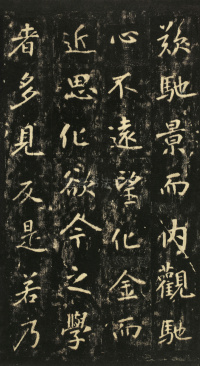 茲馳景而內觀馳
心不遠望化金而
近思化欲今之學
者多見反是若乃